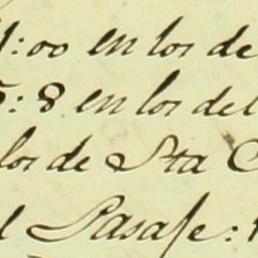 :00 en los de
: 8. en los del
los de Sta
Pasaje: